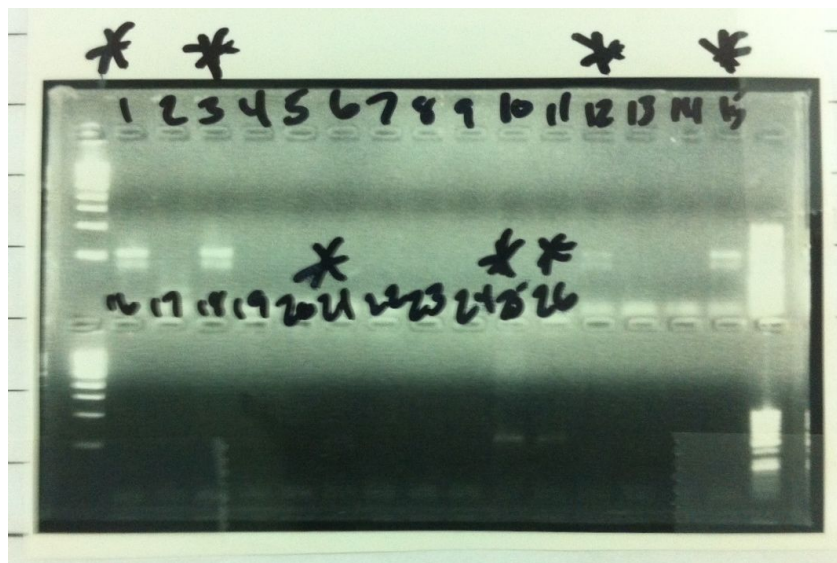 1 2 3 4 5 6 7 8 9 10 11 12 13 14 15
16 17 18 19 20 21 22 23 24 25 26